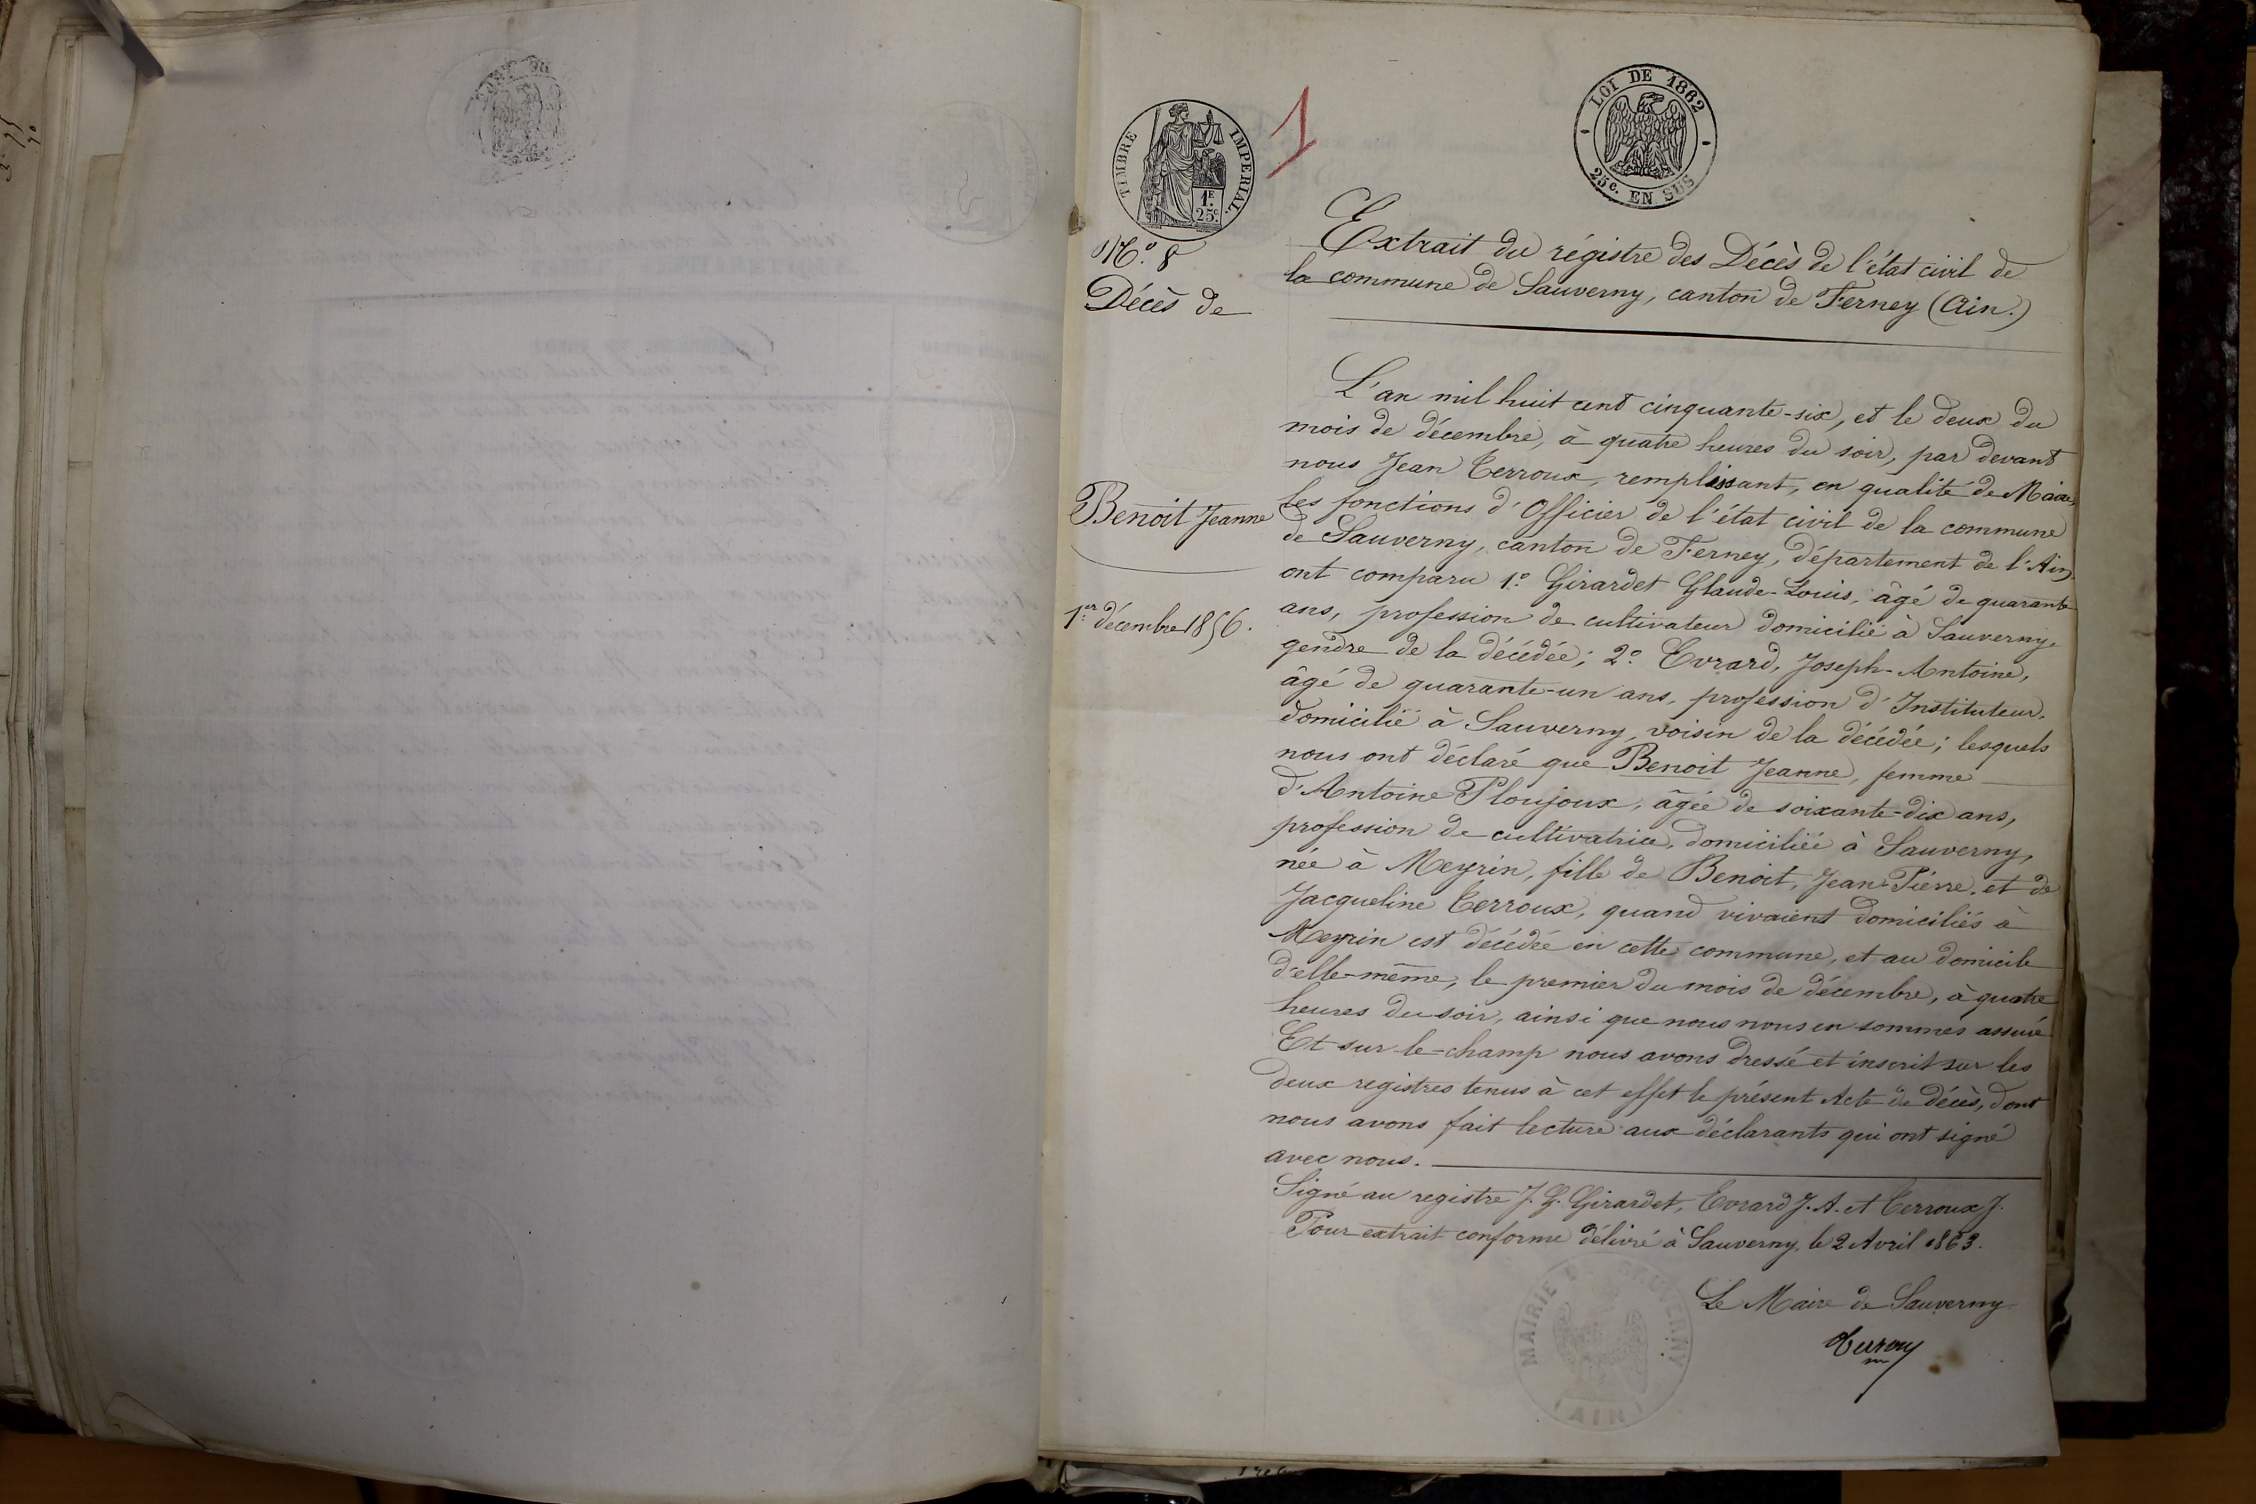 TIMBRE IMPERIAL.
1F.
25c.
1
LOI DE 1862
25c. EN SUS
No. 8
Décès de
Benoit Jeanne
1er décembre 1856.
Extrait du régistre des Décès de l'état civil de
la commune de Sauverny, canton de Ferney (Ain.)
L'an mil huit cent cinquante-six, et le deux du
mois de décembre, à quatre heures du soir, par devant
nous Jean Terroux, remplissant, en qualité de Maire,
les fonctions d'Officier de l'état civil de la commune
de Sauverny, canton de Ferney, département de l'Ain
ont comparu 1o. Girardet Glaude-Louis, âgé de quarante
ans, profession de cultivateur domicilié à Sauverny,
gendre de la décédée; 2o. Evrard, Joseph-Antoine,
âgé de quarante-un ans, profession d'Instituteur,
domicilié à Sauverny, voisin de la décédée; lesquels
nous ont déclaré que Benoit Jeanne, femme
d'Antoine Ploujoux, âgée de soixante-dix ans,
profession de cultivatrice, domiciliée à Sauverny,
née à Meyrin, fille de Benoit, Jean-Pierre, et de
Jacqueline Terroux, quand vivaient domiciliés à
Meyrin est décédée en cette commune, et au domicile
d'elle-même, le premier du mois de décembre, à quatre
heures du soir, ainsi que nous nous en sommes assuré
Et sur le-champ nous avons dressé et inscrit sur les
deux registres tenus à cet effet le présent Acte de décès, dont
nous avons fait lecture aux déclarants qui ont signé
avec nous.
Signé au registre J. G. Girardet, Evrard J. A. et Terroux J.
Pour extrait conforme délivré à Sauverny, le 2 Avril 1863.
Le Maire de Sauverny
Terroux
MAIRIE DE SAUVERNY
(AIN)